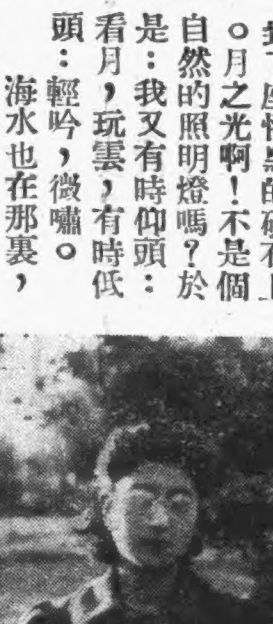 。月之光啊！不是個
自然的照明燈嗎？於
是：我又有時仰頭：
看月，玩雲，有時低
頭：輕吟，微嘯。
海水也在那裏，